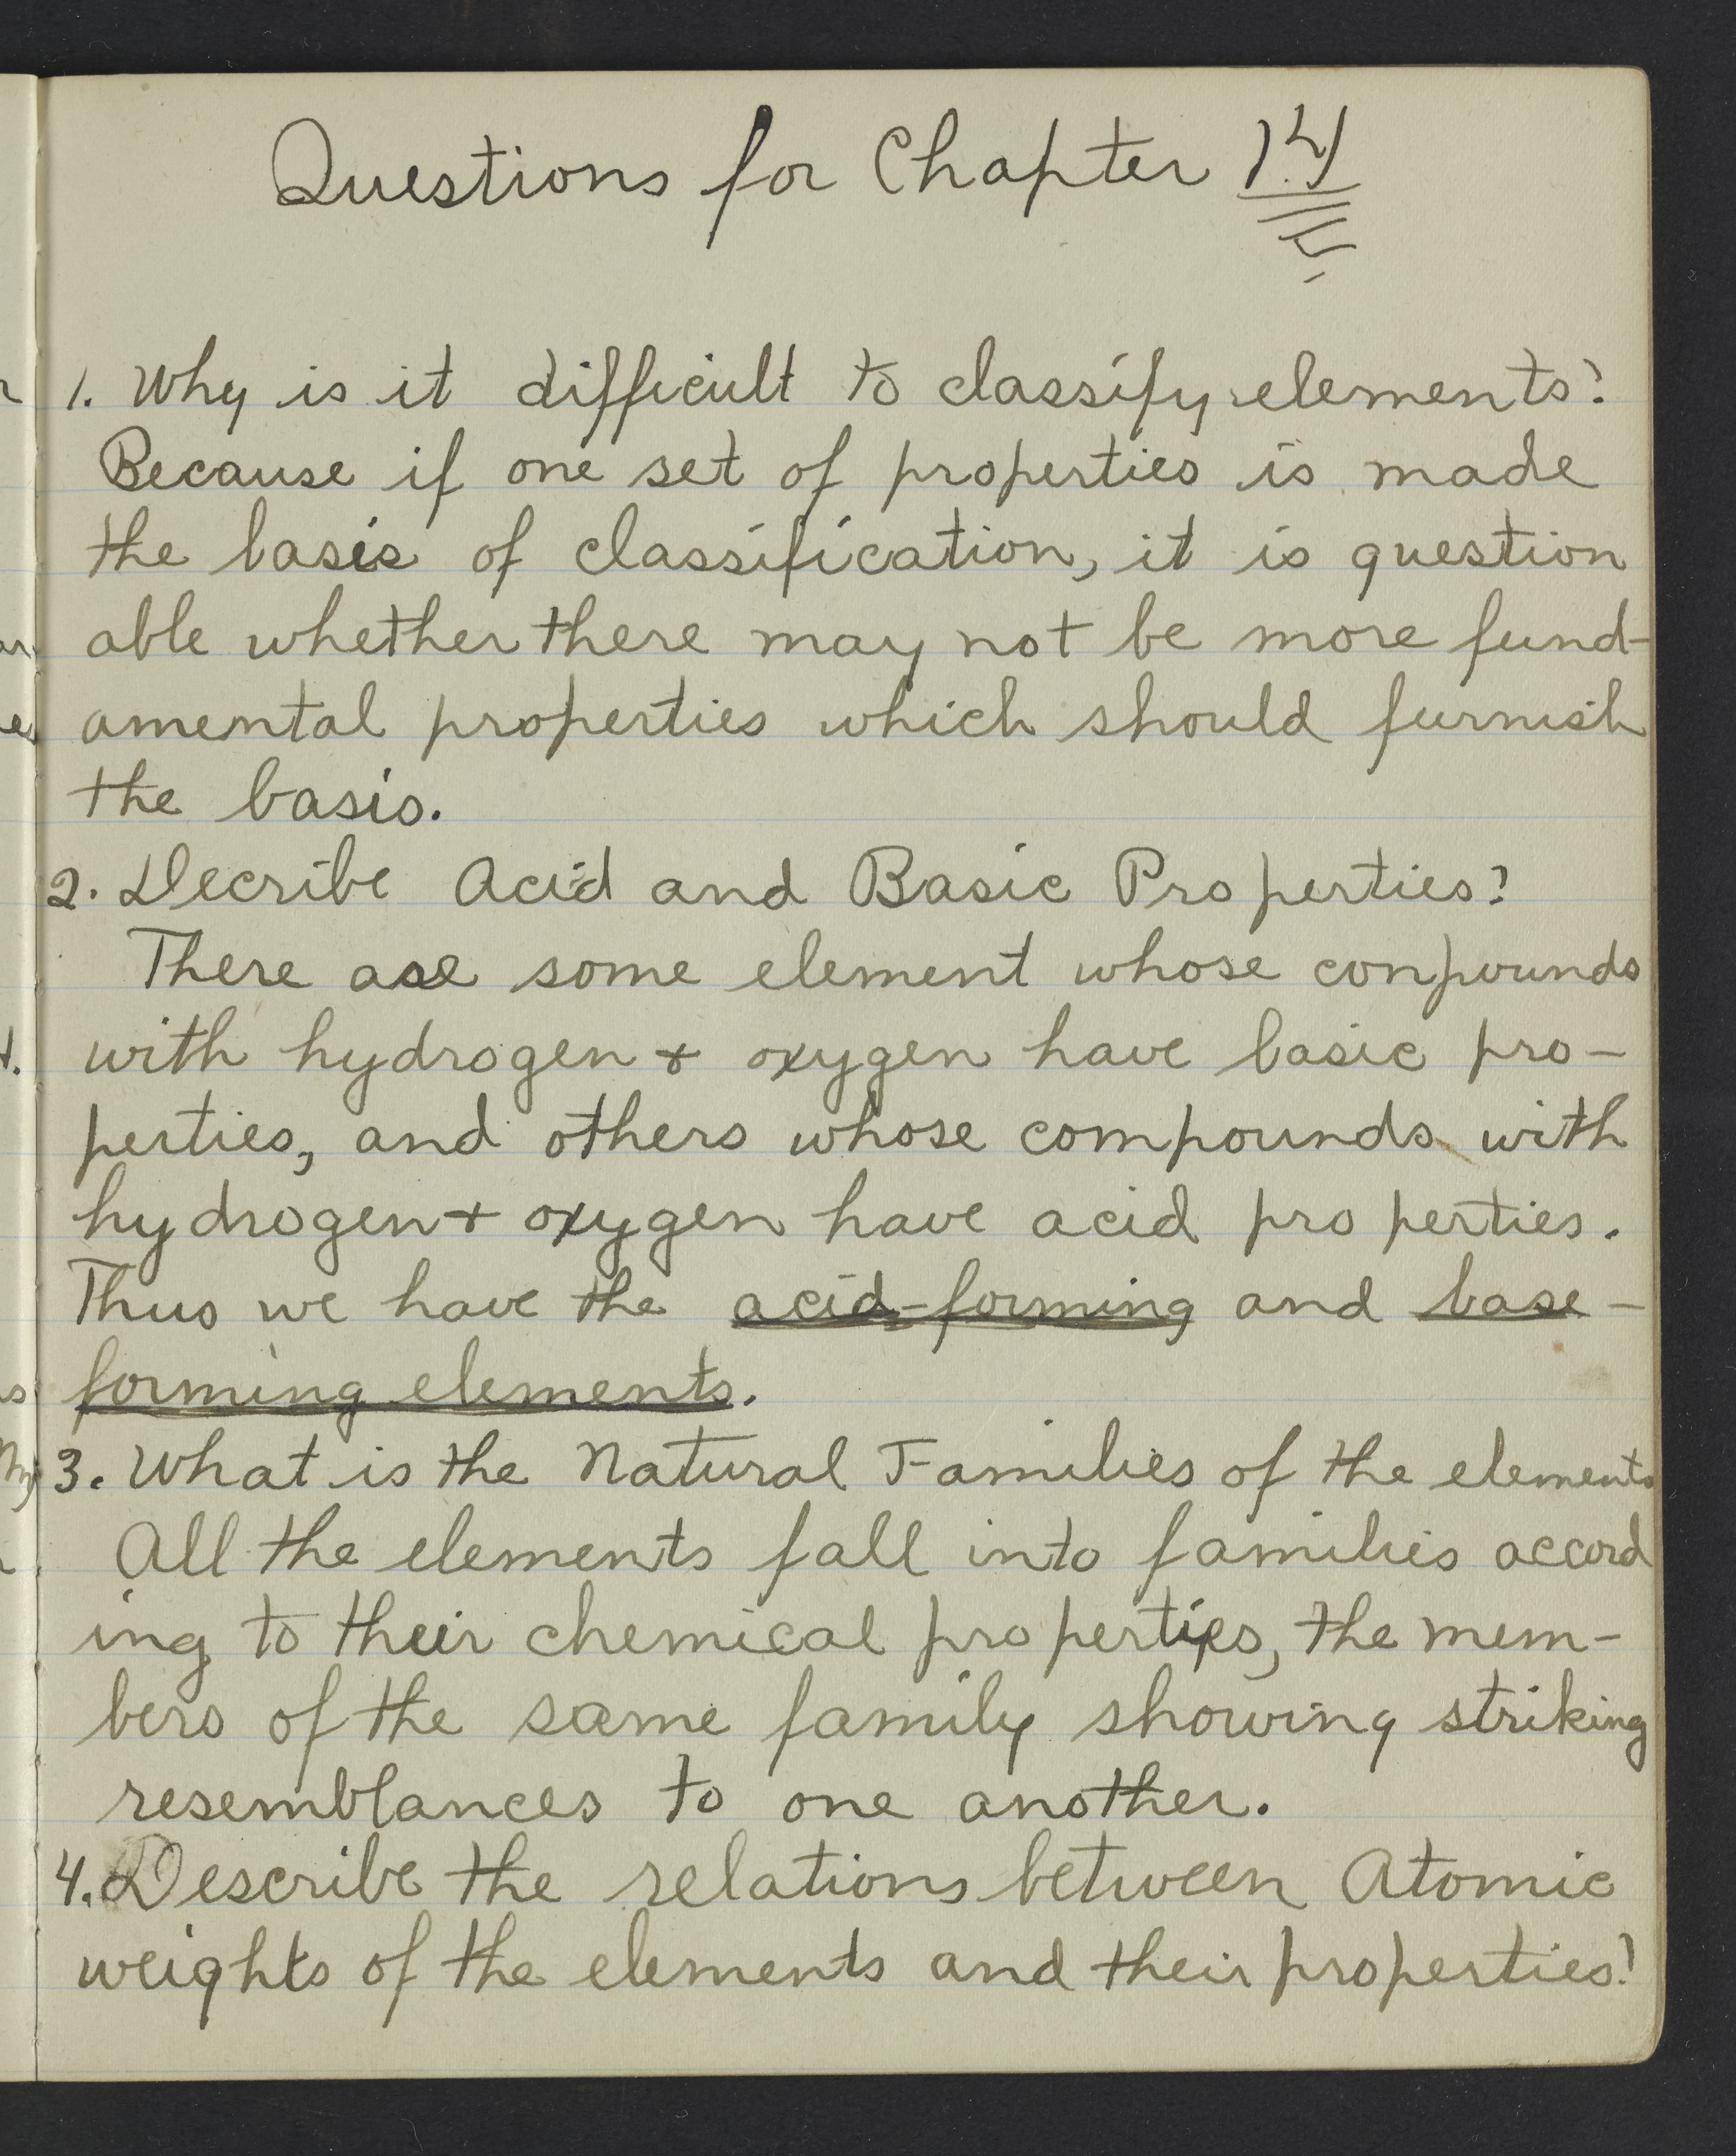 Questions for Chapter 14
1. Why is it difficult to classify elements?
Because if one set of properties is made
the basis of classification, it is question
able whether there may not be more fund-
amental properties which should furnish
the basis.
2. Decribe Acid and Basic Properties?
There are some element whose conpounds
with hydrogen + oxygen have basic pro-
perties, and others whose compounds with
hydrogen + oxygen have acid properties.
Thus we have the acid-forming and base-
forming elements.
3. What is the Natural Families of the elements
All the elements fall into families accord
ing to their chemical properties, the mem-
bers of the same family showing striking
resemblances to one another.
4. Describe the relations between Atomic
weights of the elements and their properties?